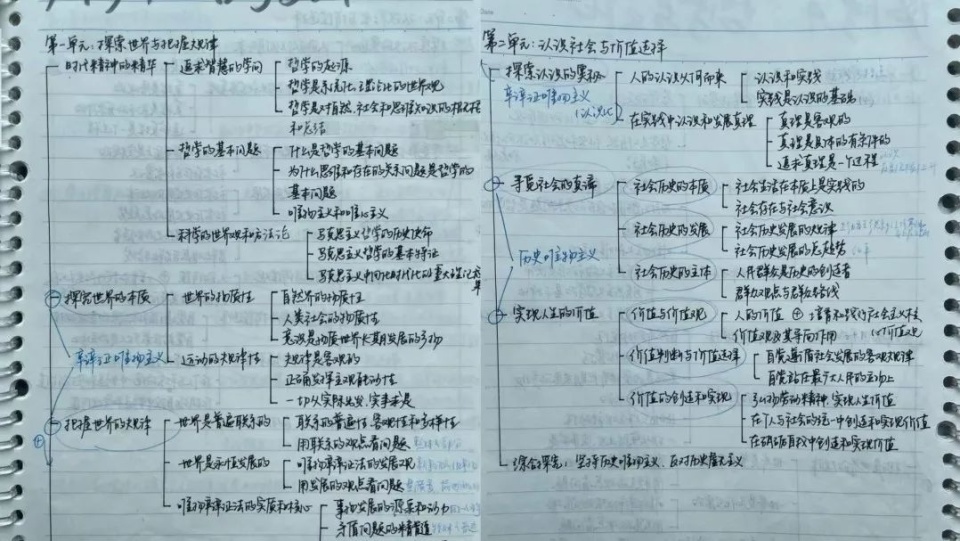 第一单元：探索世界与把握规律
时代精神的精华
追求智慧的学问
哲学的起源
哲学是系统化、理论化的世界观
哲学是对自然、社会和思维知识的概括
和总结
哲学的基本问题
什么是哲学的基本问题
为什么思维和存在的关系问题是哲学的
基本问题
唯物主义和唯心主义
科学的世界观和方法论
马克思主义哲学的历史使命
马克思主义哲学的基本特征
马克思主义中国化时代化的重大理论成果
探究世界的本质
世界的物质性
自然界的物质性
人类社会的物质性
意识是物质世界长期发展的产物
辩证唯物主义
运动的规律性
规律是客观的
正确发挥主观能动性
一切从实际出发，实事求是
把握世界的规律
世界是普遍联系的
联系的普遍性、客观性和多样性
用联系的观点看问题
世界是永恒发展的
唯物辩证法的发展观
用发展的观点看问题
唯物辩证法的实质和核心
事物发展的源泉和动力
矛盾问题的精髓
第二单元：认识社会与价值选择
探索认识的奥秘
人的认识从何而来
认识和实践
实践是认识的基础
辩证唯物主义
（认识论）
在实践中认识和发展真理
真理是客观的
真理是具体的有条件的
追求真理是一个过程
寻觅社会的真谛
社会历史的本质
社会生活在本质上是实践的
社会存在与社会意识
社会历史的发展
社会历史发展的规律
社会历史发展的总趋势
历史唯物主义
社会历史的主体
人民群众是历史的创造者
群众观点与群众路线
实现人生的价值
价值与价值观
人的价值 ⊕ 培育和践行社会主义核
心价值观
价值观及其导向作用
价值判断与价值选择
自觉遵循社会发展的客观规律
自觉站在最广大人民的立场上
价值的创造和实现
弘扬劳动精神，实现人生价值
在个人与社会的统一中创造和实现价值
在砥砺自我中创造和实现价值
综合探究：坚持历史唯物主义、反对历史虚无主义